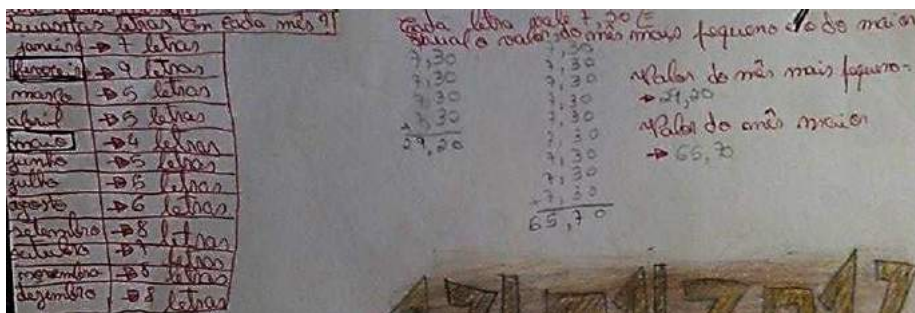 Quantas letras tem cada mês?
janeiro → 7 letras
fevereiro → 9 letras
março → 5 letras
abril → 5 letras
maio → 4 letras
junho → 5 letras
julho → 5 letras
agosto → 6 letras
setembro → 8 letras
outubro → 7 letras
novembro → 8 letras
dezembro → 8 letras
Cada letra vale 7,30 €
Qual o valor do mês mais pequeno e o do maior
7,30
7,30
7,30
+7,30
29,20
7,30
7,30
7,30
7,30
7,30
7,30
7,30
7,30
+7,30
65,70
Valor do mês mais pequeno =
→ 29,20
Valor do mês maior
→ 65,70